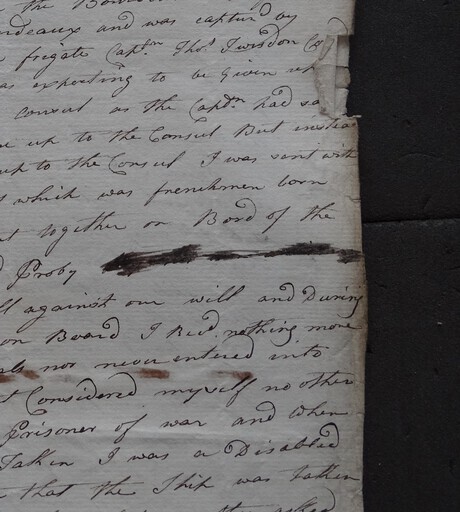 the
ordeaux and was capturd by
frigate Captn Thos Twisdon Co
as expecting to be Given up
consul as the Captn had sa
me up to the Consul But instead
up to the Consul I was sent with
s which was frenchmen born
nt together on Bord of the
d Proby
ll against our will and During
on Board I Recd nothing more
ls nor never entered into
t Considered myself no other
Prisoner of war and when
Taken I was a Disabled
that the Ship was taken
the asked